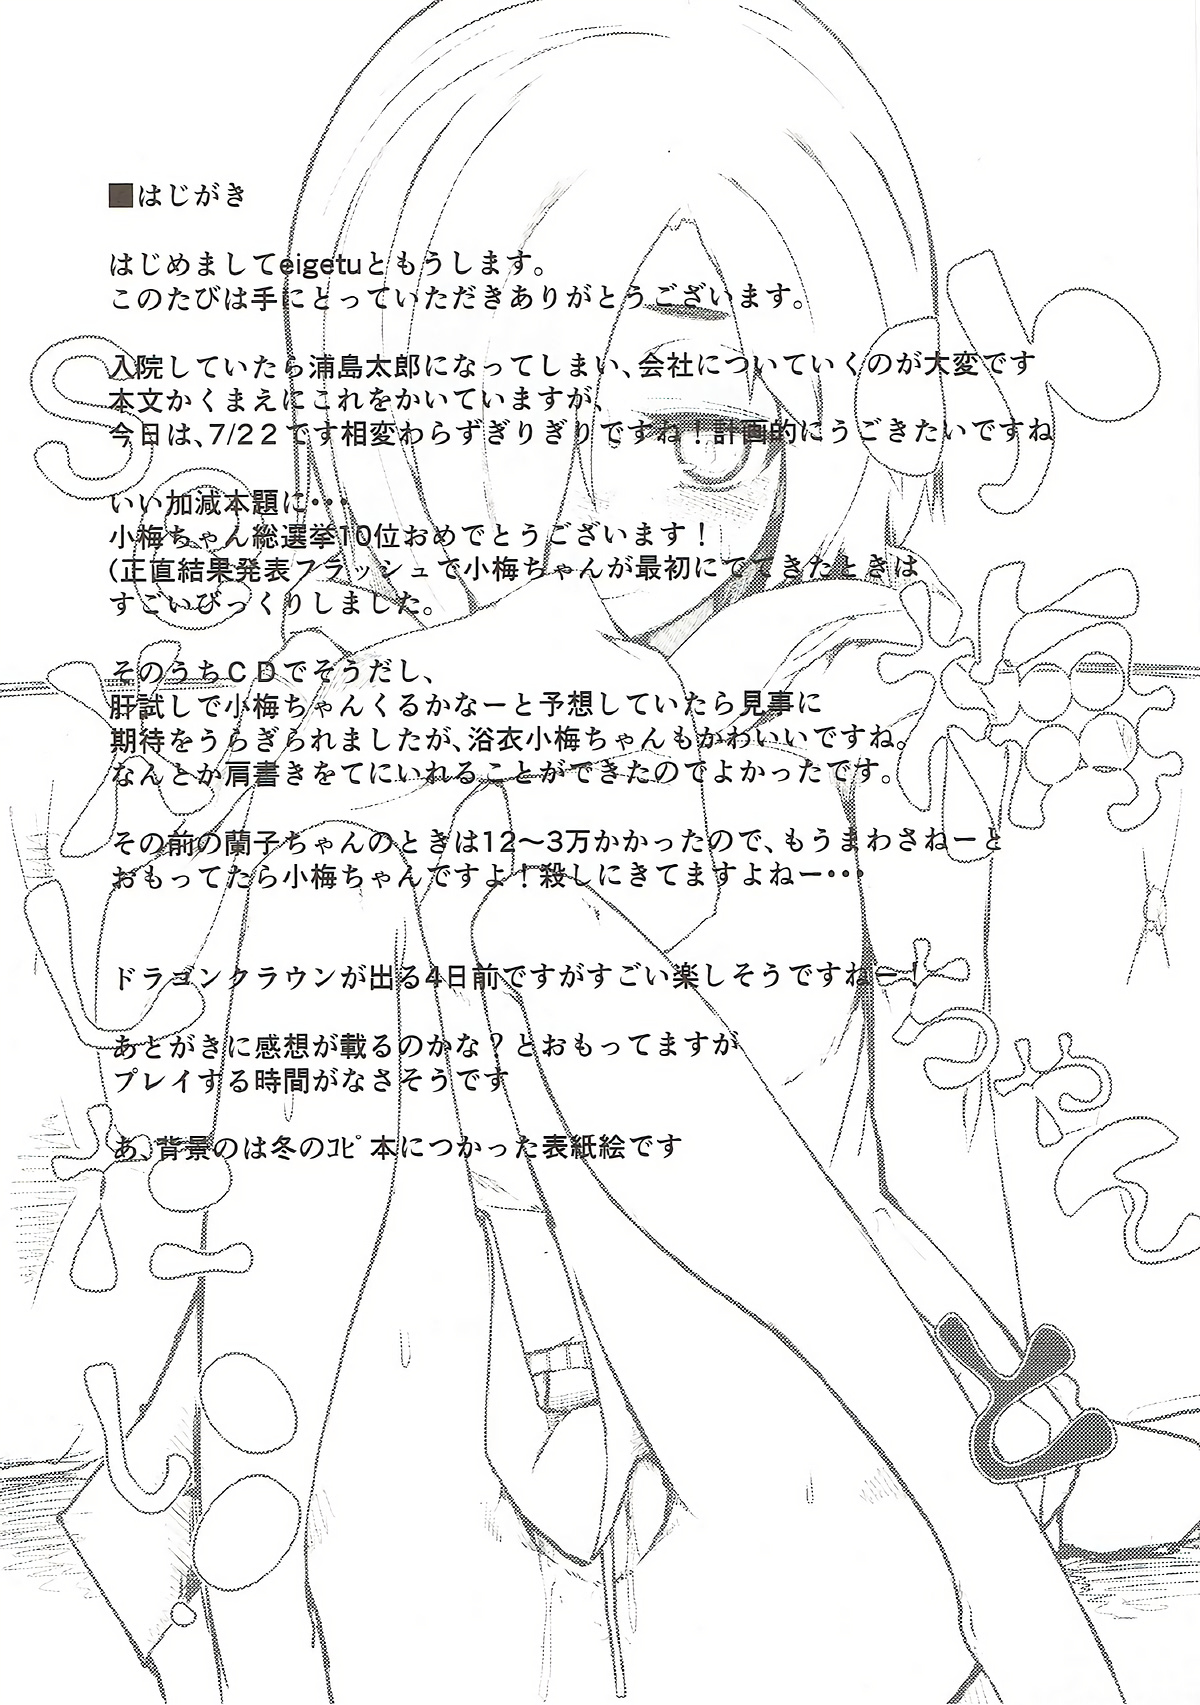 ■はじがき
はじめましてeigetuともうします。
このたびは手にとっていただきありがとうございます。
入院していたら浦島太郎になってしまい、会社についていくのが大変です
本文かくまえにこれをかいていますが、
今日は、7/22です相変わらずぎりぎりですね！計画的にうごきたいですね
いい加減本題に・・・
小梅ちゃん総選挙10位おめでとうございます！
(正直結果発表フラッシュで小梅ちゃんが最初にでてきたときは
すごいびっくりしました。
そのうちCDでそうだし、
肝試しで小梅ちゃんくるかなーと予想していたら見事に
期待をうらぎられましたが、浴衣小梅ちゃんもかわいいですね。
なんとか肩書きをてにいれることができたのでよかったです。
その前の蘭子ちゃんのときは12～3万かかったので、もうまわさねーと
おもってたら小梅ちゃんですよ！殺しにきてますよねー・・・
ドラゴンクラウンが出る4日前ですがすごい楽しそうですねー！
あとがきに感想が載るのかな？とおもってますが
プレイする時間がなさそうです
あ、背景のは冬のｺﾋﾟ本につかった表紙絵です